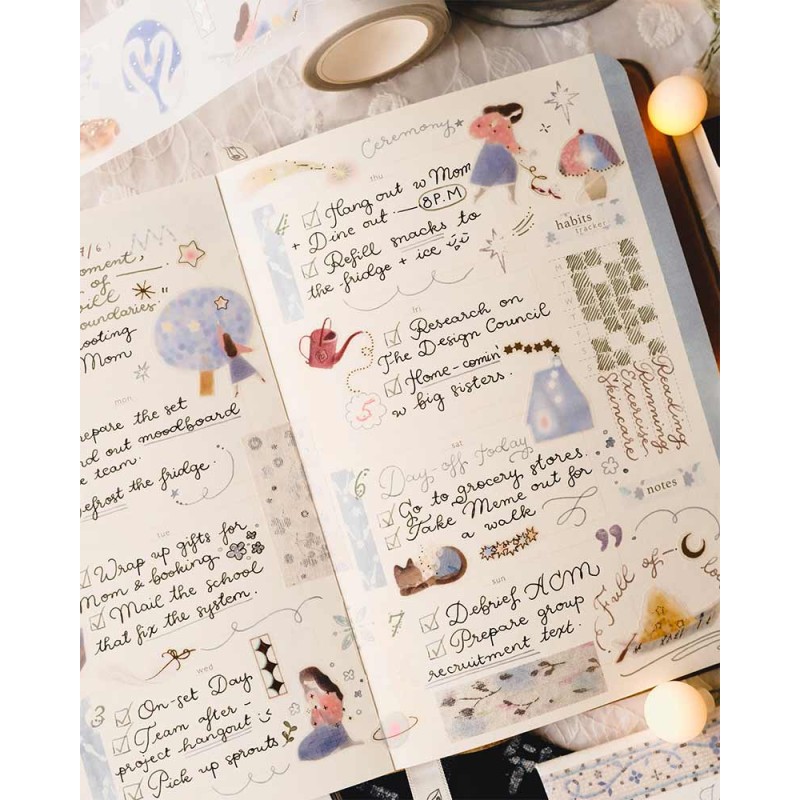 7/6
oment,
of
will
oundaries."
ooting
Mom
mon
epare the set
nd out moodboard
e team.
efrost the fridge.
tue
Wrap up gifts for
Mom & booking
Mail the school
that fix the system.
wed
3
On-set Day
Team after-
project hangout
Pick up sprouts
Ceremony
thu
4
Hang out w Mom
+ Dine out — 8P.M
Refill snacks to
the fridge + ice
fri
5
Research on
The Design Council
Home-comin'
w big sisters.
sat
6
Day-off today
Go to grocery stores.
Take Meme out for
a walk
sun
7
Debrief ACM
Prepare group
recruitment text.
habits
tracker
M
T
W
Reading
Running
Exercise
Skincare
notes
Full of —
lo